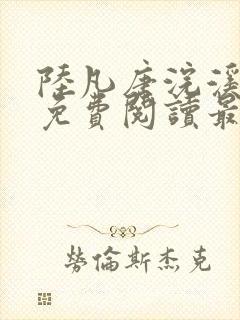 陸凡唐浣溪
免費閱讀最
勞倫斯杰克